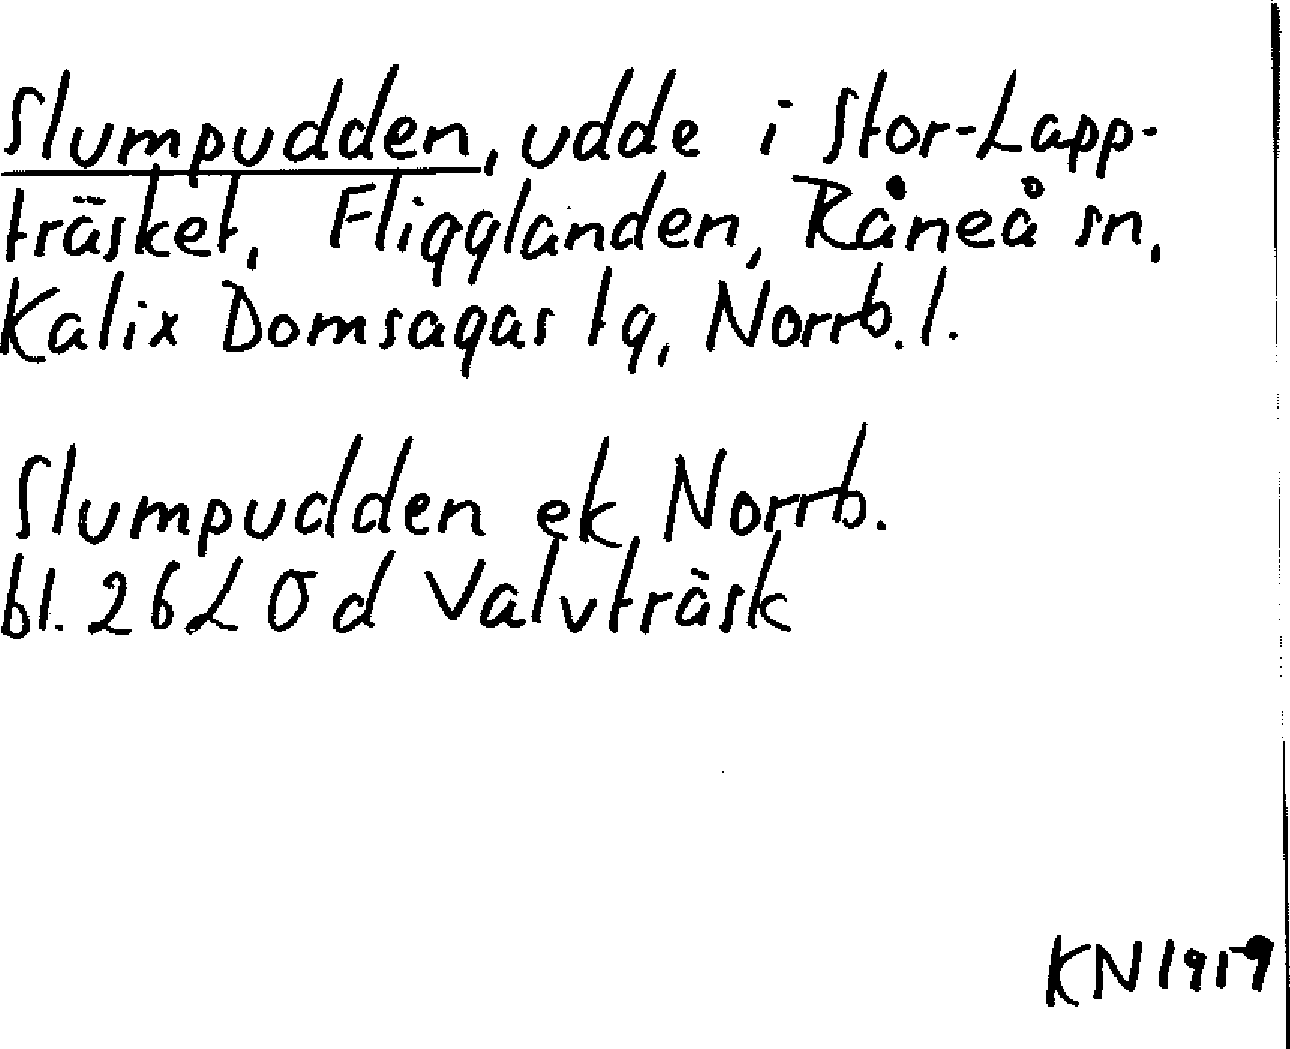 Slumpudden, udde i Stor-Lapp-
träsket, Fligglanden, Råneå sn,
Kalix Domsagas tg, Norrb. l.
Slumpudden ek Norrb.
bl. 26L 0 d Valvträsk
KN 1919